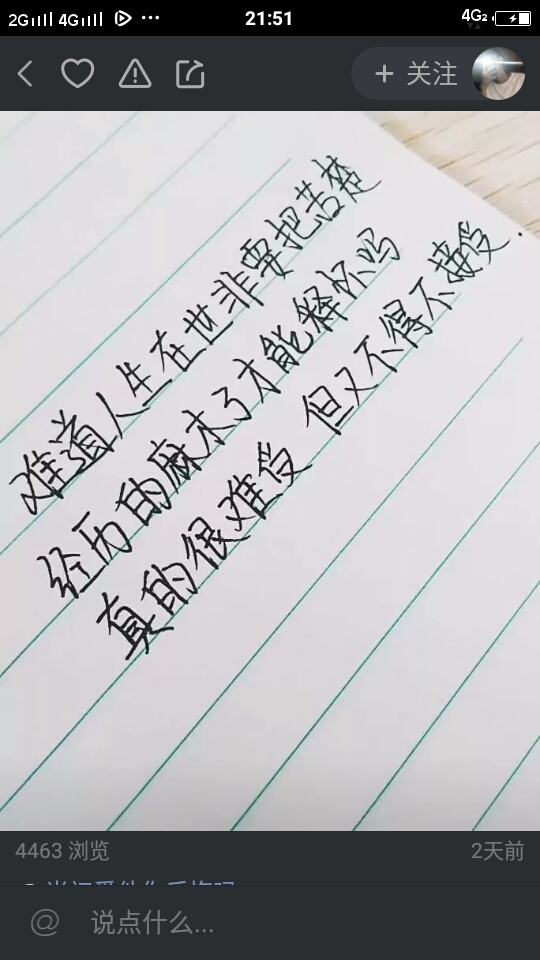 2G 4G ... 21:51 4G2
+ 关注
难道人生在世非要把苦楚
经历的麻木了才能释怀吗
真的很难受 但又不得不接受.
4463 浏览
2天前
@ 说点什么...